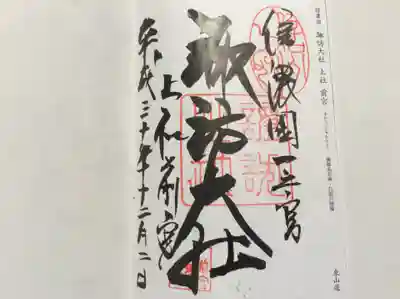 信濃國 諏訪大社 上社 前宮
信濃國一之宮
諏訪大社
上社前宮
平成三十年十二月二日
東山道